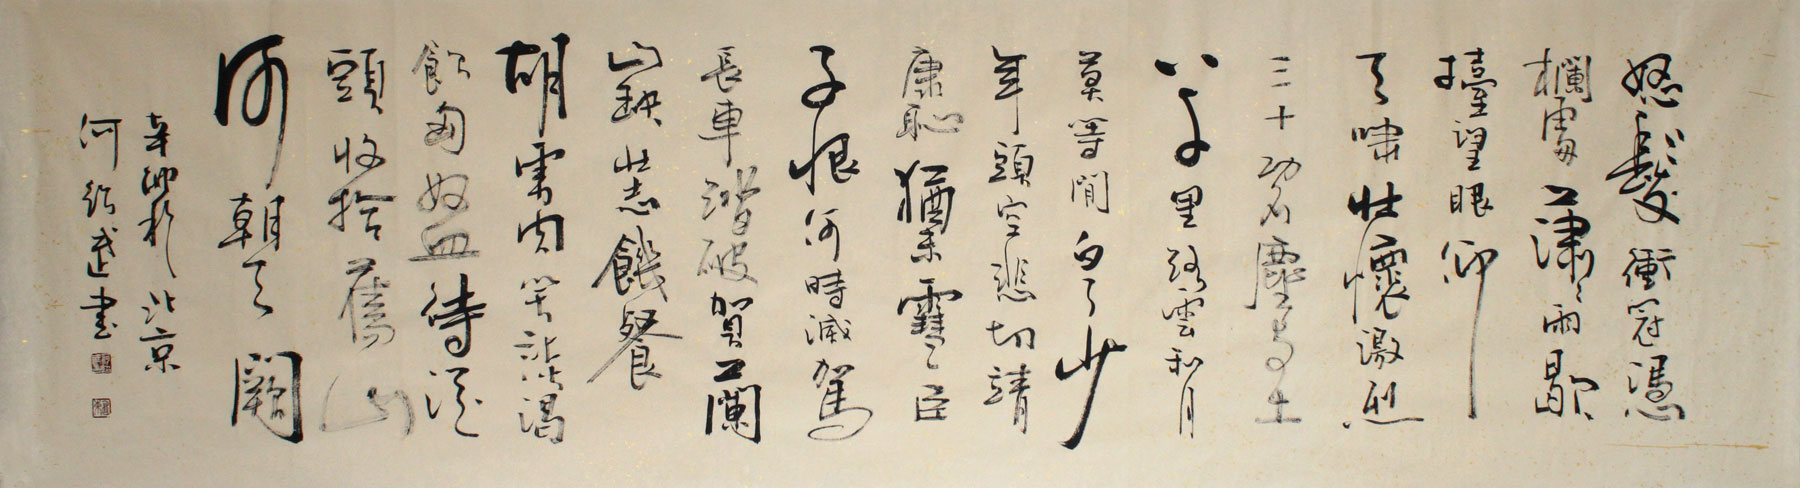 怒髮衝冠憑
欄處瀟瀟雨歇
擡望眼仰
天嘯壯懷激烈
三十功名塵與土
八千里路雲和月
莫等閒白了少
年頭空悲切靖
康恥猶未雪臣
子恨何時滅駕
長車踏破賀蘭
山缺壯志饑餐
胡虜肉笑談渴
飲匈奴血待從
頭收拾舊山
河朝天闕
辛卯於北京
何武書